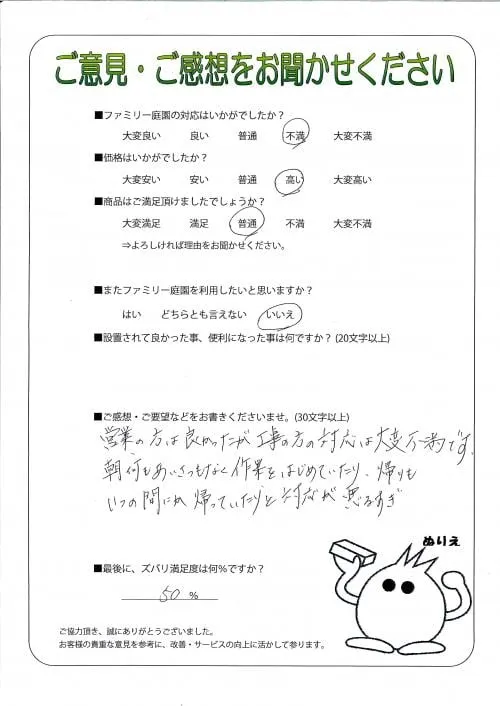 ご意見・ご感想をお聞かせください
■ファミリー庭園の対応はいかがでしたか？
大変良い 良い 普通 不満 大変不満
■価格はいかがでしたか？
大変安い 安い 普通 高い 大変高い
■商品はご満足頂けましたでしょうか？
大変満足 満足 普通 不満 大変不満
⇒よろしければ理由をお聞かせください。
■またファミリー庭園を利用したいと思いますか？
はい どちらとも言えない いいえ
■設置されて良かった事、便利になった事は何ですか？(20文字以上)
■ご感想・ご要望などをお書きくださいませ。(30文字以上)
営業の方は良かったが工事の方の対応は大変不満です。
朝何もあいさつもなく作業をはじめていたり、帰りも
いつの間にか帰っていたりと対応が悪るすぎ
ぬりえ
■最後に、ズバリ満足度は何％ですか？
50 %
ご協力頂き、誠にありがとうございました。
お客様の貴重な意見を参考に、改善・サービスの向上に活かして参ります。